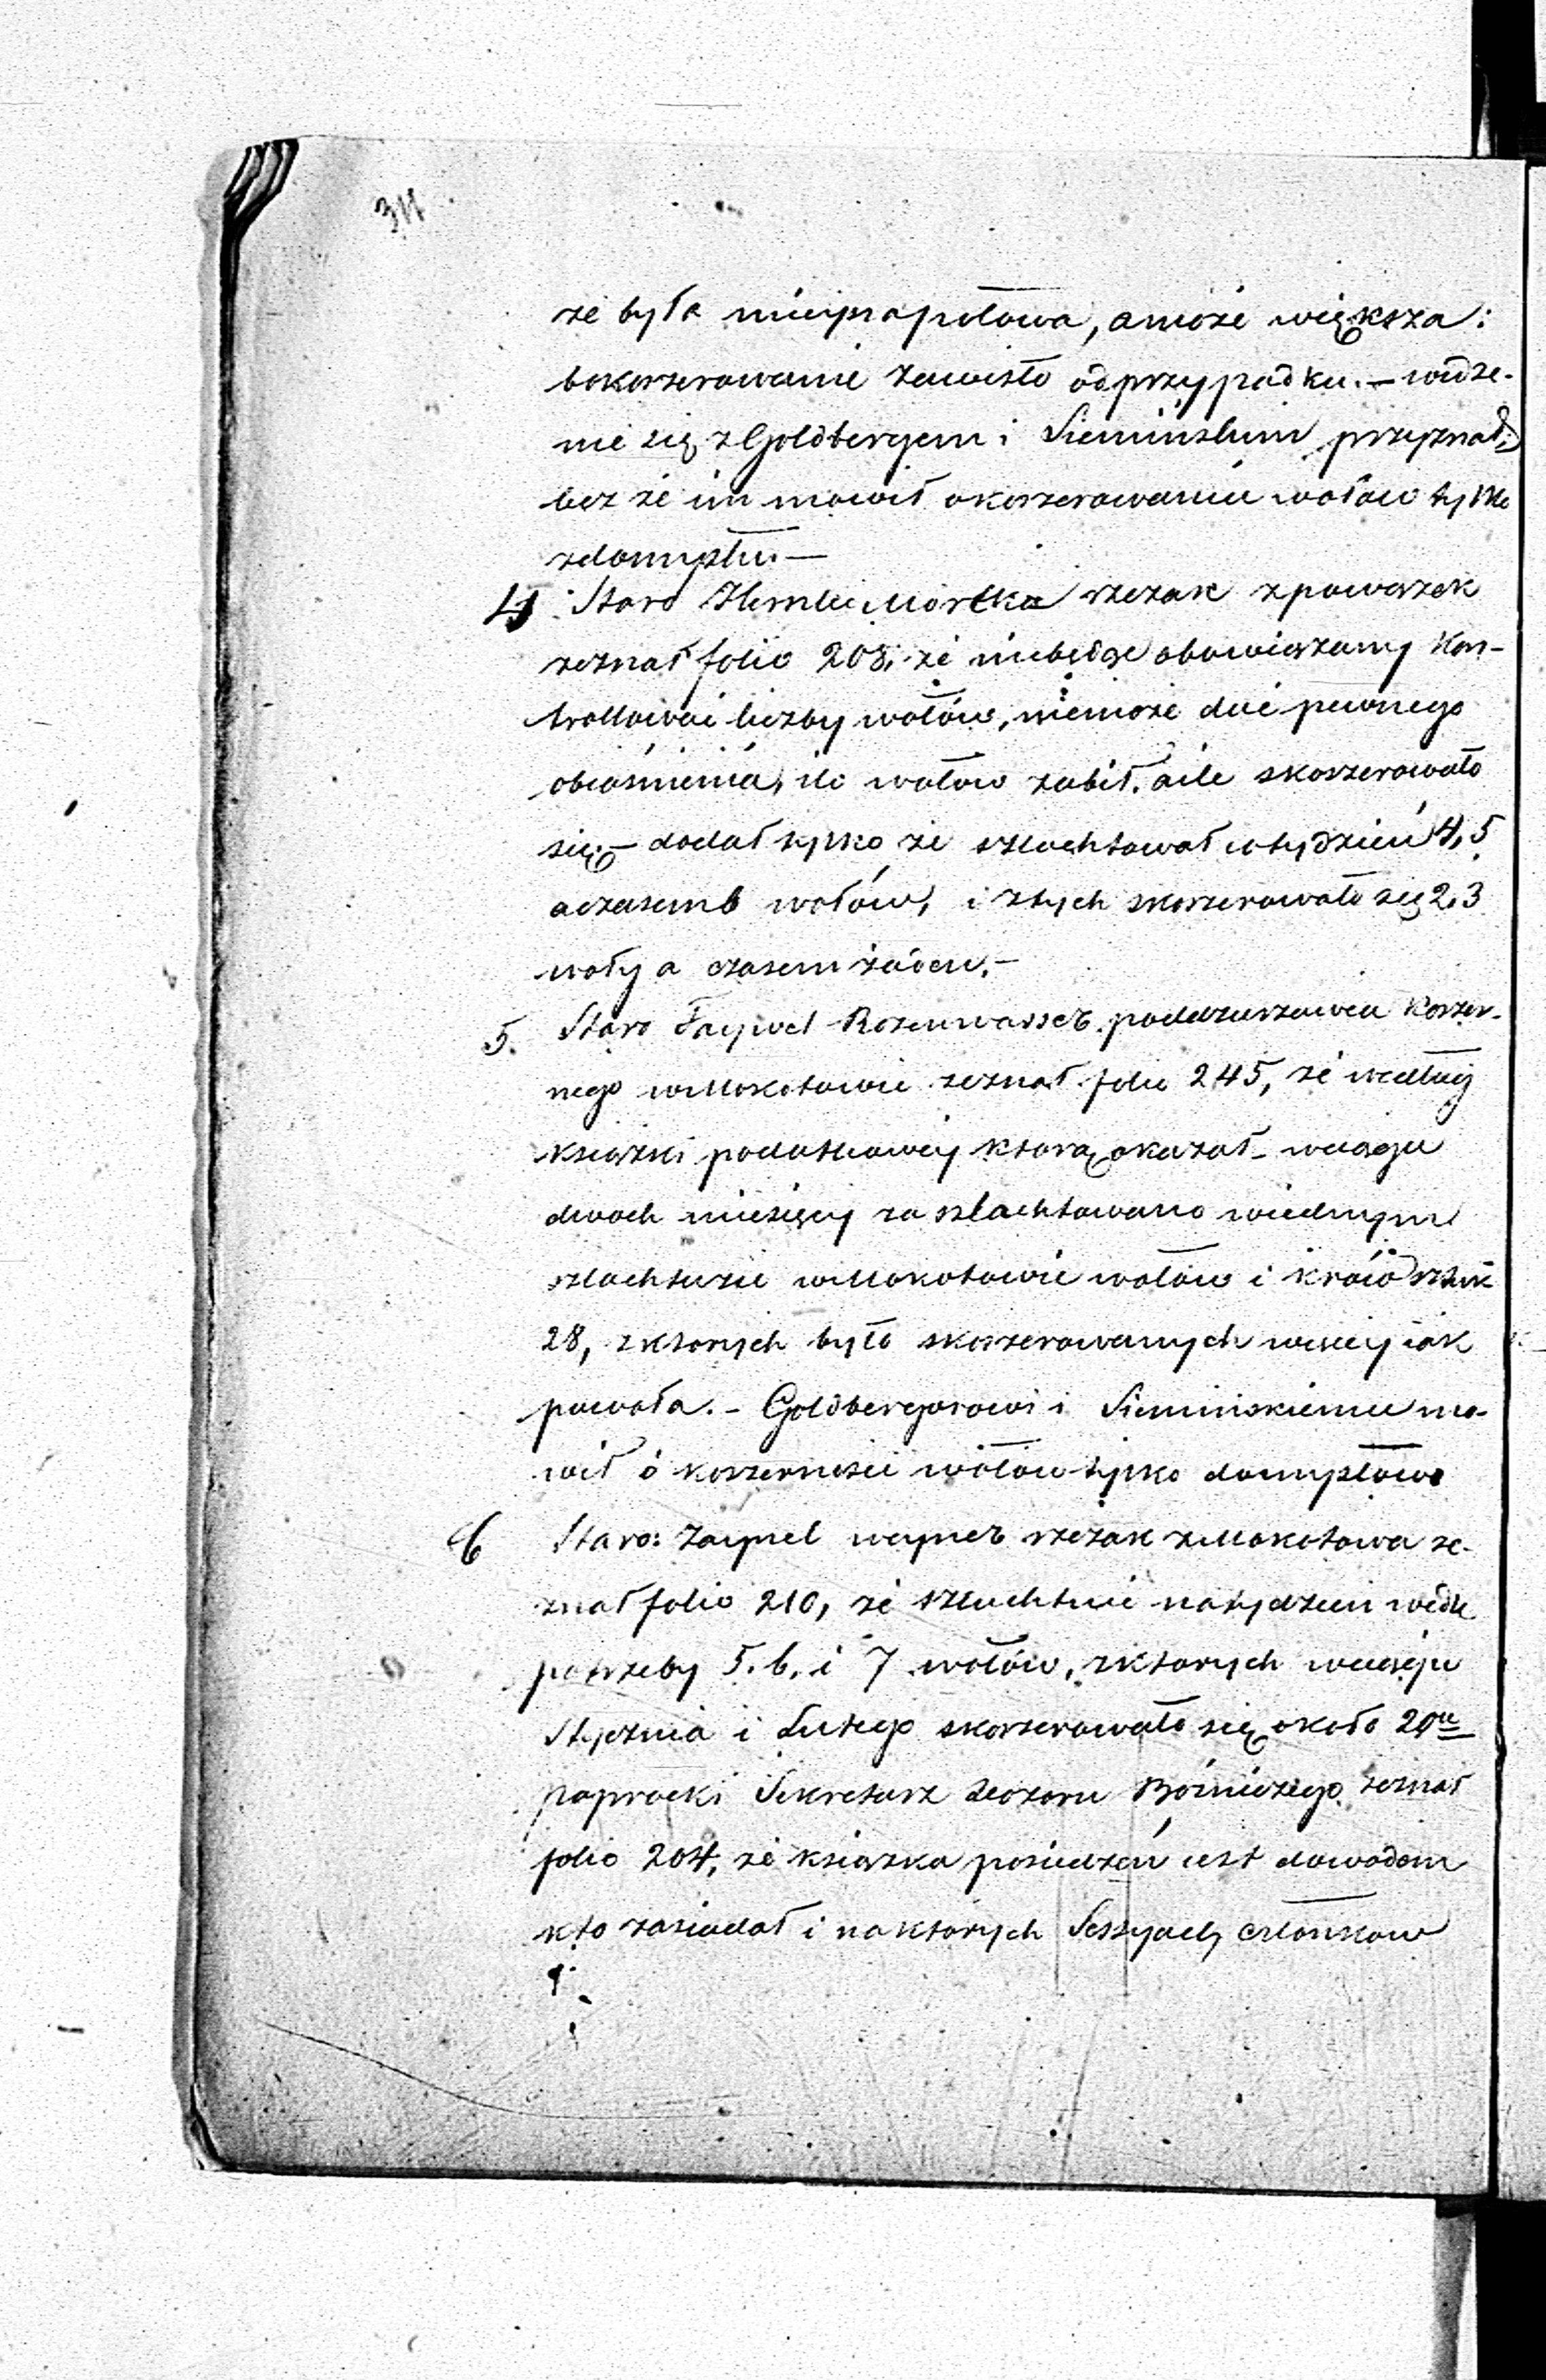 311
że była mniej za połowa, a może większa:
bo koszerowanie zawisło od przypadku. — widze-
nie się z Goldbergem i Siemińskim przyznał:
bez że im mowił o koszerowaniu wołow tylko
z domysłu. —
4 Staro Hemle Mortka rzezak z powązek
zeznał folio 208; że niebędąc obowiązany kon-
trollować liczby wołów, niemoże dać pewnego
obiaśnienia, ile wołow zabił, a ile skoszerowało
się; — dodał tylko że szlachtował w tydzień 4, 5
a czasem 6 wołów, i z tych skoszerowało się 2, 3
woły a czasem żaden. —
5. Staro Faywel Rozenwasser poddzierżawca Koszer-
nego w Mokotowie zeznał folio 245, że według
ksiązki podatkowey którą okazał w ciągu
dwoch miesięcy zaszlachtowano w iednym
szlachtuzie w Mokotowie wołow i krów sztuk
28, z ktorych było skoszerowanych więcey iak
połowa. — Goldbergorowi i Siemińskiemu mo-
wił o koszerności wołow tylko domysłowo
6 Staro: Zaynel wayner rzezak z Mokotowa ze-
znał folio 210, że szlachtuie na tydzien wedle
potrzeby 5. 6. i 7 wołów, z ktorych w ciągu
Stycznia i Lutego skoszerowało się około 20u
paprocki Sekretarz dozoru Bożniczego zeznał
folio 204, że ksiązka posiedzeń iest dowodem
kto zasiadał i na ktorych Sessyach członkow